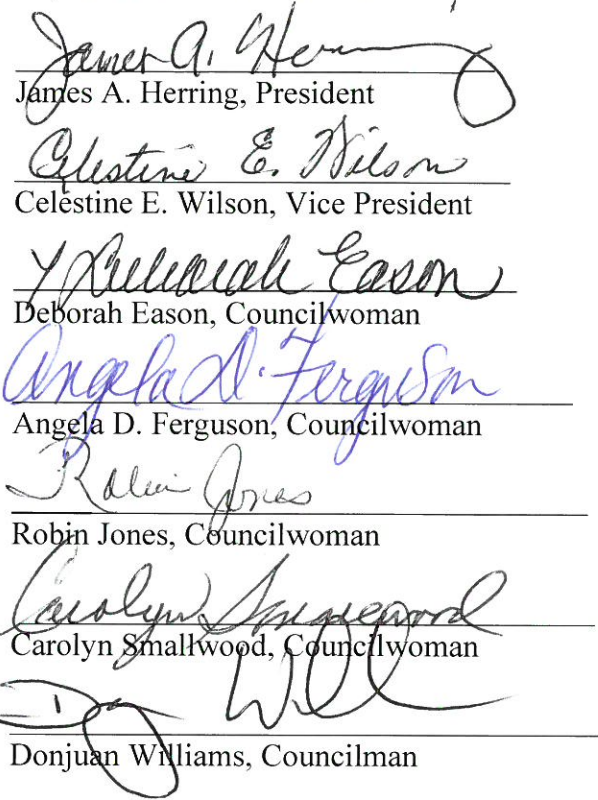 James A. Herring
James A. Herring, President
Celestine E. Wilson
Celestine E. Wilson, Vice President
Deborah Eason
Deborah Eason, Councilwoman
Angela D. Ferguson
Angela D. Ferguson, Councilwoman
Robin Jones
Robin Jones, Councilwoman
Carolyn Smallwood
Carolyn Smallwood, Councilwoman
Donjuan Williams, Councilman